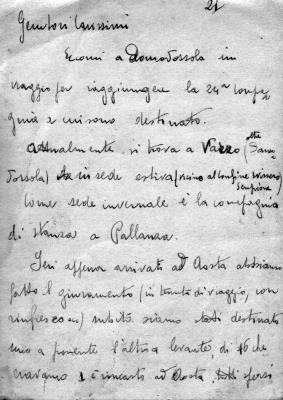 21
Genitori Carissimi
Eccomi a Domodossola in
viaggio per raggiungere la 24ª compa
gnia e ci sono destinato.
Attualmente si trova a Varzo (
Dossola) in sede estiva (vicino al confine svizzero
Sempione
Come sede invernale è la compagnia
di stanza a Pallanza.
Ieri appena arrivati ad Aosta abbiamo
fatto il giuramento (in tenuta di viaggio, con
rinfresco) subito siamo stati destinati
uno a ponente l'altro a levante, di 16 che
eravamo ad Aosta, tutti spersi